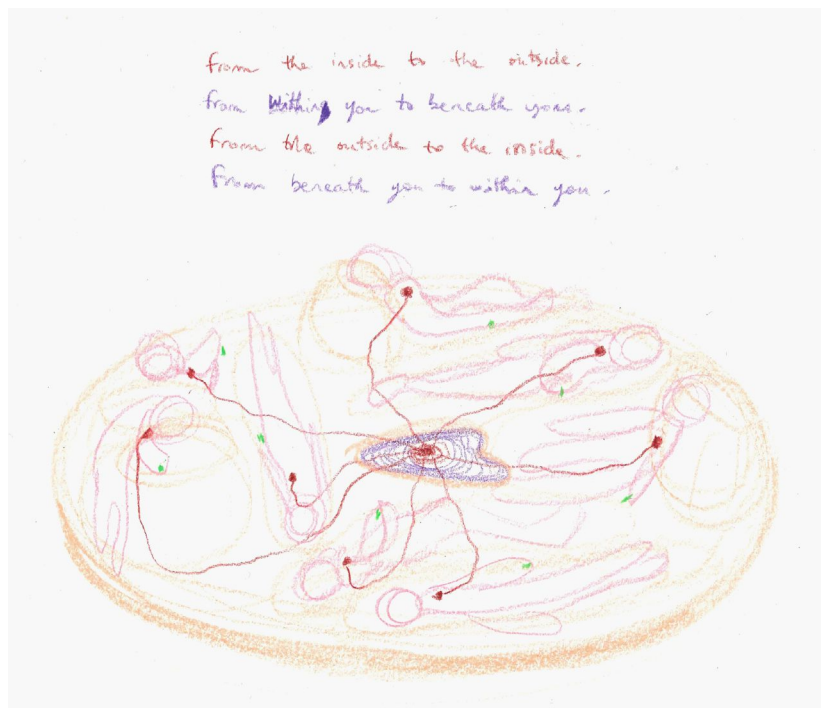 from the inside to the outside.
from within you to beneath you.
from the outside to the inside.
From beneath you to within you.